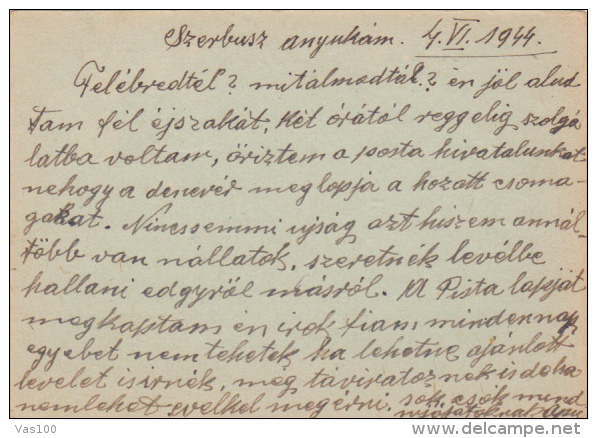 Szerbusz anyukám. 4. VI. 1944.
Felébredtél? mitálmodtál? én jól alud
tam fél éjszakát, Két órától reggelig szolgá
latba voltam, őriztem a posta hivatalunkat
nehogy a denevér meglopja a hozott csoma-
gakat. Nincssemmi ujság azt hiszem annál-
több van nállatok, szeretnék levélbe
hallani edgyről másról. A Pista lapját
megkaptam én irok fiam mindennap
egyebet nemtehetek ha lehetne ajánlott
levelet isirnék, még táviratoznek is deha
nemlehet evelkel megérni. sok csók mind
nyájatoknak Apu
Vas100
©delcampe.net